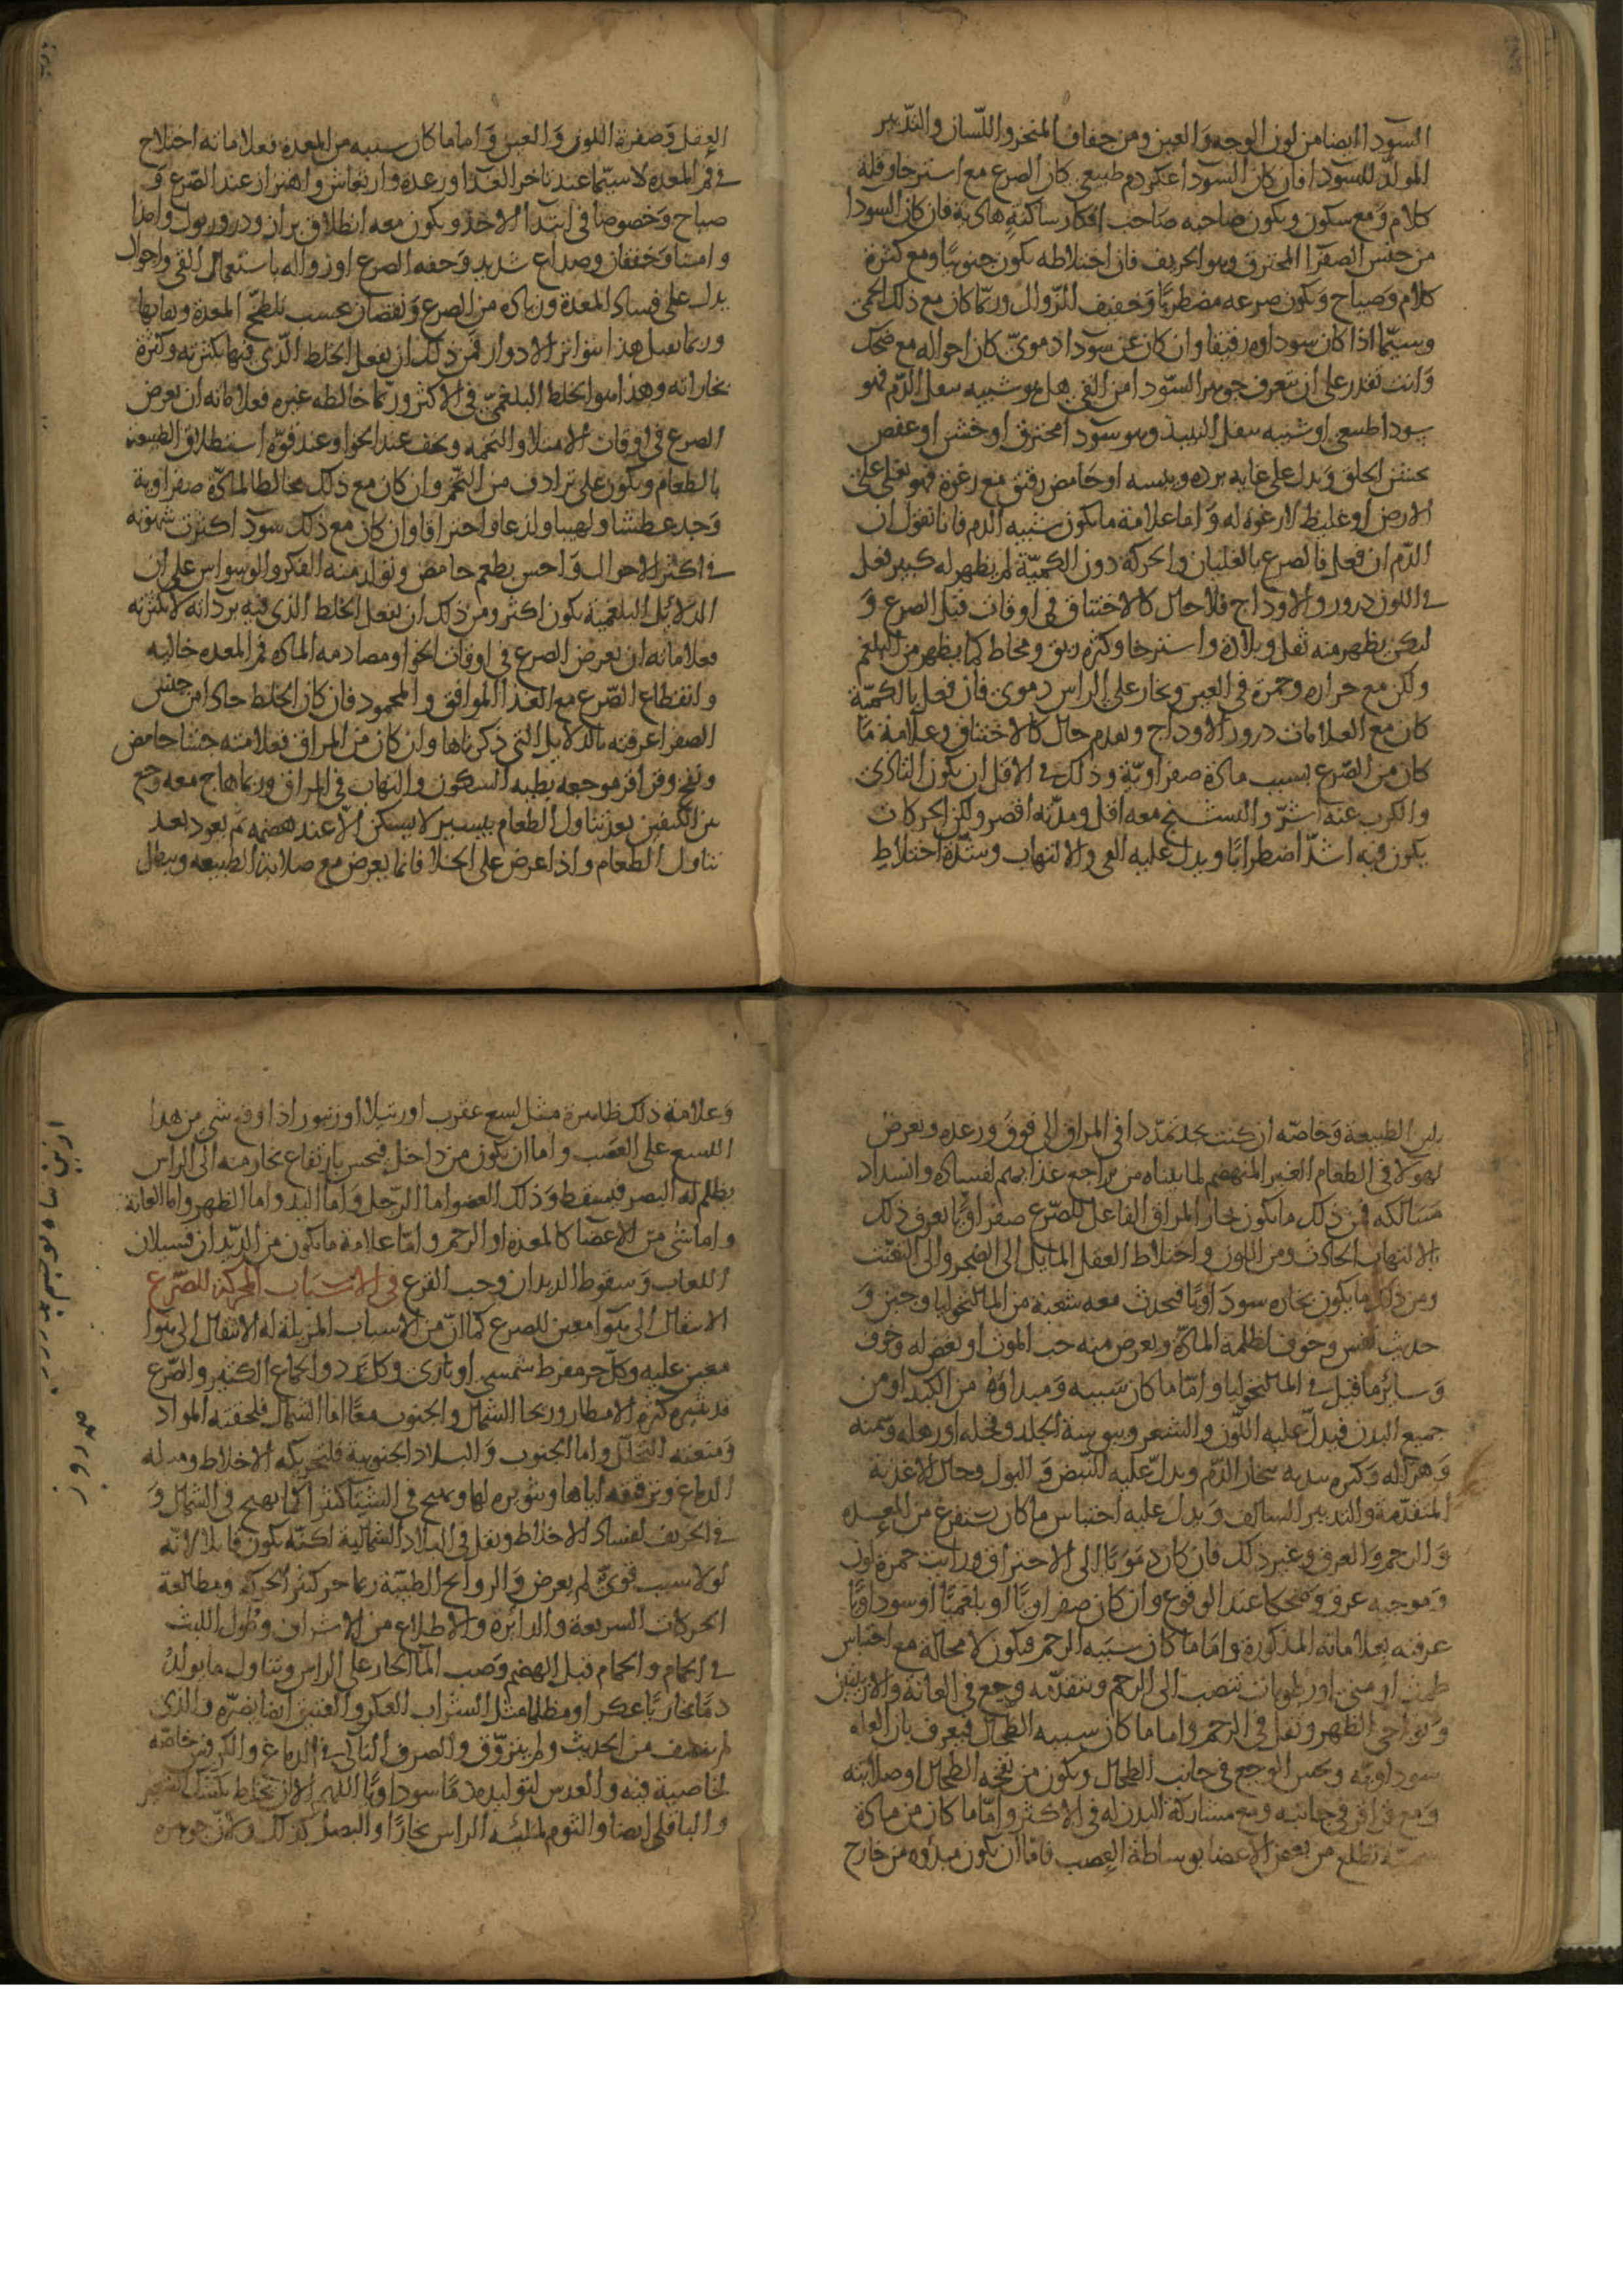 السودا ايضا من لون الوجه والعين ومن جفاف المنخر واللسان والتدبير
المولد للسودا فان كان السودا عكر دم طبيعي كان الصرع مع استرخا وقلة
كلام ومع سكون ويكون صاحبه صاحب افكار ساكنة هادية فان كان السودا
من جنس الصفرا المحترق وهو الحريف فان اختلاطه يكون جنونيا ومع كثرة
كلام وصياح ويكون صرعه مضطربا وخفيف الزوال وربما كان مع ذلك الحمى
وسيما اذا كان سوداوه رقيقا وان كان عن سودا دموي كان احواله مع ضحك
وانت تقدر على ان تتعرف جوهر السودا من القي هل هو شبيه بثفل الدم فهو
سودا طبيعي او شبيه بثفل النبيذ وهو سودا محترق او خشن او عفص
يخشن الحلق ويدل على غايه برده ويبسه او حامض رقيق مع رغوة فهو يغلي على
الارض او غليظ لا رغوة له واما علامة ما يكون شبيه الدم فانا نقول ان
الدم ان فعل فالصرع بالغليان والحركة دون الكمية لم يظهر له كبير فعل
في اللون درور والاوداج فلا حال كالاختناق في اوقات قبل الصرع و
لكن يظهر منه ثقل وبلادة واسترخا وكثرة ريق ومخاط كما يظهر من البلغم
ولكن مع حرارة وحمرة في العين وبخار على الراس دموي فان فعل بالكمية
كان مع العلامات درور الاوداج ويقدم حال كالاختناق وعلامة ما
كان من الصرع بسبب مادة صفراوية وذلك في الاقل ان يكون التاذي
والكرب عنه اشر والتشنج معه اقل ومدته اقصر ولكن الحركات
يكون فيه اشد اضطرابا ويدل عليه القي والالتهاب وشدة اختلاط
العقل وصفرة اللون والعين واما ما كان سببه من المعدة فعلاماته اختلاج
في فم المعدة لا سيما عند تاخر الغذا ورعدة وارتعاش واهتزاز عند الصرع و
صياح وخصوصا في ابتدا الاخذ ويكون معه انطلاق براز ودرور بول وامذا
وامنا وخفقان وصداع شديد وخفه الصرع او زواله باستعمال القي واحوال
يدل على فساد المعدة وزيادة من الصرع ونقصان بحسب تلطخ المعدة ونقايها
وربما يقبل هذا بتواتر الادوار فمن ذلك ان يفعل الخلط الذي فيها بكثرته وكثرة
بخاراته وهذا هو الخلط البلغمي في الاكثر وربما خالطه غيره فعلاماته ان يعرض
الصرع في اوقات الامتلا والتخمه ويخف عند الخوا وعند قوة استطلاق الطبيعة
بالطعام ويكون على ترادف من التخم وان كان مع ذلك مخالطا لمادة صفراوية
وجد عطشا ولهيبا ولذعا واحتراقا وان كان مع ذلك سودا كثرت شهوته
في اكثر الاحوال واحس بطعم حامض وتولد منه الفكر والوسواس على ان
الدلايل البلغمية يكون اكثر ومن ذلك ان يفعل الخلط الذي فيه برداته لا بكثرته
فعلاماته ان يعرض الصرع في اوقات الخوا ومصادمه المادة فم المعده خاليه
وانقطاع الصرع مع الغذا الموافق والمحمود فان كان الخلط حادا من جنس
الصفرا عرفته بالدلايل التي ذكرناها وان كان من المراق فعلامته جشا حامض
ونفخ وقراقر موجعه بطيه السكون والتهاب في المراق وربما هاج معه وجع
بين الكتفين بعد تناول الطعام بيسير لا يسكن الا عند هضمه ثم يعود بعد
تناول الطعام واذا عرض على الخلا فانما يعرض مع صلابة الطبيعه ويبطل
بلين الطبيعة وخاصه ان كنت تجد تمددا في المراق الى فوق ورعده ويعرض
لهولا في الطعام الغير المنهضم لما بيناه من تراجع غذايهم لفساده وانسداد
مسالكه فمن ذلك ما يكون بخار المراق الفاعل للصرع صفراويا يعرف ذلك
بالالتهاب الحادث ومن اللون واختلاط العقل المايل الى الضجر والى التعنت
ومن ذلك ما يكون بخاره سوداويا فيحدث معه شعبة من الماليخوليا وجبن و
حديث نفس وخوف لظلمه المادة ويعرض منه حب الموت او بغض له وخوف
وساير ما قيل في الماليخوليا واما ما كان سببه ومبداوه من الكبد او من
جميع البدن فيدل عليه اللون والشعر ويبوسة الجلد وقحله او رهله وسمنه
وهزاله وكثره تنديه بخار الدم ويدل عليه النبض والبول وحال الاغذية
المتقدمة والتدبير السالف ويدل عليه احتباس ما كان يستفرغ من المعده
والرحم والعرق وغير ذلك فان كان دمويا الى الاحتراق ورايت حمرة لون
وموجبه عرق وضحكا عند الوقوع وان كان صفراويا او بلغميا او سوداويا
عرفته بعلاماته المذكورة واما ما كان سببه الرحم فيكون لا محالة مع احتباس
طمث او مني او رطوبات تنصب الى الرحم ويتقدمه وجع في العانة والاربيتين
ونواحي الظهر وثقل في الرحم واما ما كان سببه الطحال فيعرف بان العله
سوداوية ويحس الوجع في جانب الطحال ويكون من نفخه الطحال او صلابته
ومع قراقر في جانبه ومع مشاركة البدن له في الاكثر واما ما كان من مادة
تطلع من بعض الاعضا بوساطة العصب فاما ان يكون مبدؤه من خارج
وعلامة ذلك ظاهرة مثل لسع عقرب او رتيلا او زنبور اذا وقع شي من هذا
اللسع على العصب واما ان يكون من داخل فيحس بارتفاع بخار منه الى الراس
يظلم له البصر فيسقط وذلك العضو اما الرجل واما اليد واما الظهر واما العانة
واما شي من الاعضا كالمعدة او الرحم واما علامة ما يكون من الديدان فسيلان
اللعاب وسقوط الديدان وحب القرع في الاسباب المحركة للصرع
الانتقال الى هوا معين للصرع كما ان من الاسباب المزيلة له الانتقال الى هوا
معين عليه وكل حر مفرط شمسي او ناري وكل برد والجماع الكثير والصرع
قد يثيره كثرة الامطار وريحا الشمال والجنوب معا اما الشمال فلحقنه المواد
ومنعه التحلل واما الجنوب والبلاد الجنوبية فلتحريكه الاخلاط ومله
الدماغ وترقيقه اياها وتثويره لها ويهيج في الشتا كثيرا كما يهيج في الشمال و
في الخريف لفساد الاخلاط ويقل في البلاد الشمالية لكنه يكون قاتلا لانه
لولا سبب قوي لم يعرض والروايح الطيبة ربما حركته وكثرة الحركة ومطالعة
الحركات السريعة والدايرة والاطلاع من الاشراف وطول اللبث
في الحمام والحمام قبل الهضم وصب الما الحار على الراس وتناول ما يولد
دما بخاريا عكرا ومظلما مثل الشراب العكر والعتيق ايضا يضره والذي
لم يصف من الحديث ولم يتروق والصرف الناكي في الدماغ والكرفس خاصه
لخاصية فيه والعدس لتوليده دما سوداويا اللهم الا ان يخلط بكشك الشعير
والباقلي ايضا والثوم لمليه الراس بخارا والبصل كذلك ولان جوهره